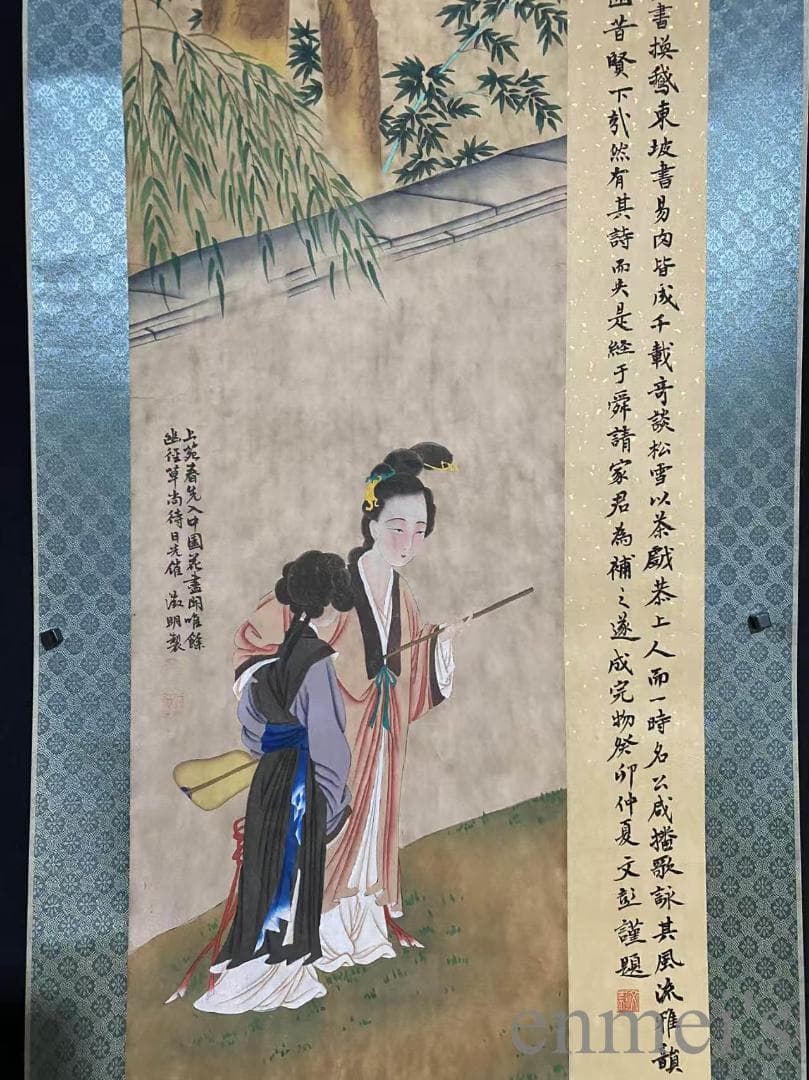 書換鵝東坡書易肉皆成千載奇談松雪以茶戲恭上人而一時名公咸播歌詠其風流雅韻
出昔賢下哉然有其詩而失是經于舜請家君為補之遂成完物癸卯仲夏文彭謹題
上苑春先入中園花盡開唯餘
幽徑草尚待日光催 明製
enmei's